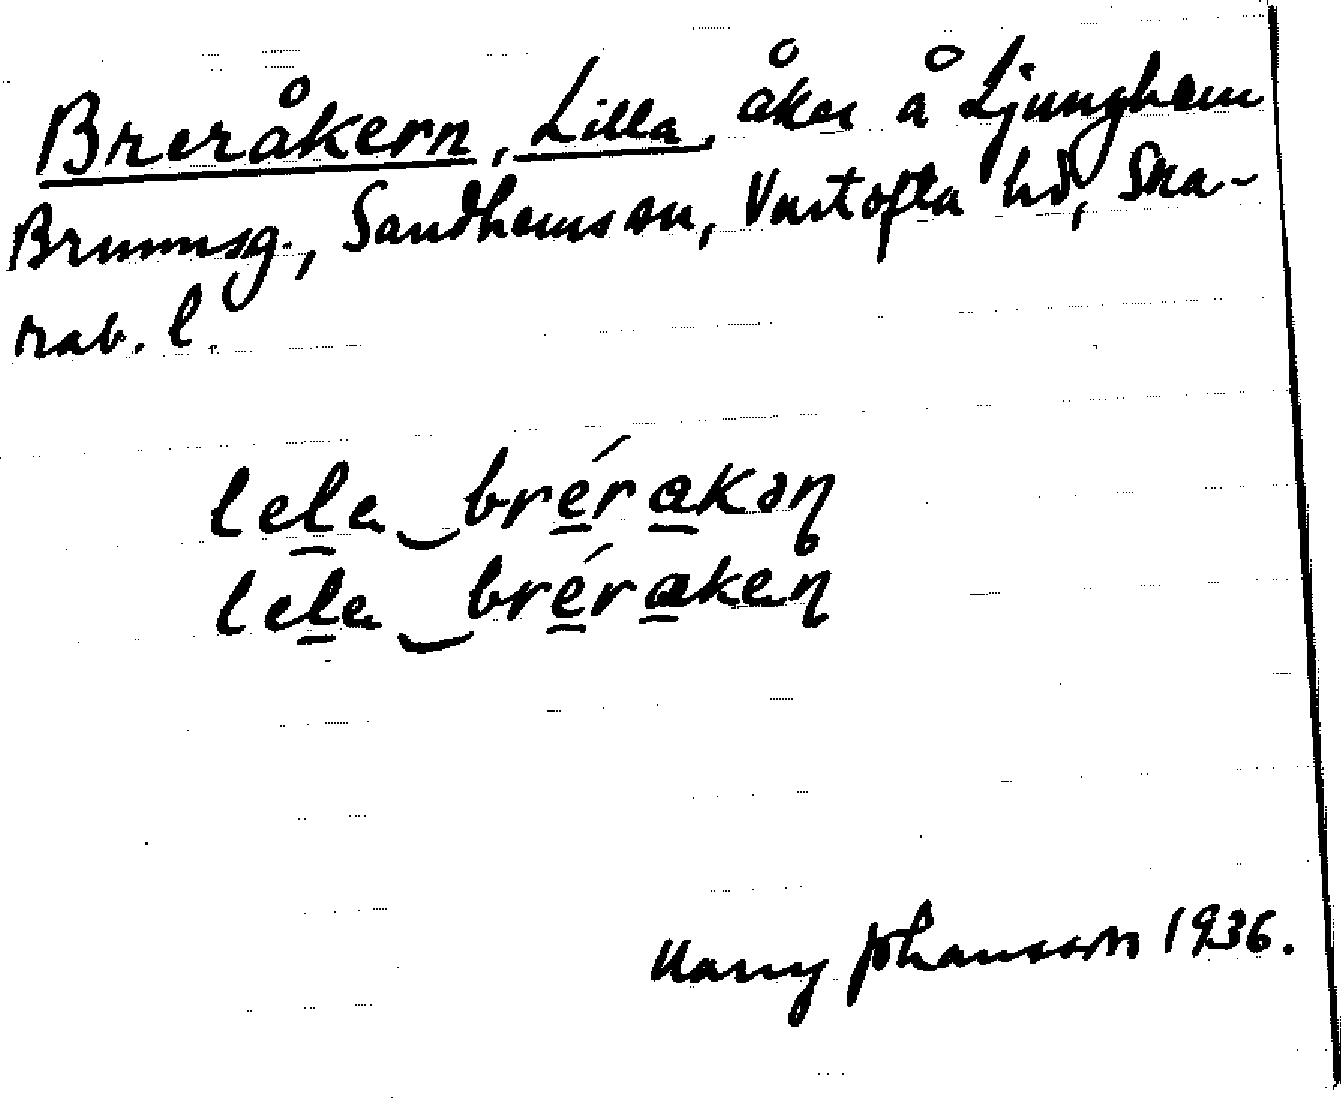 Breråkern, Lilla, åker å Ljunghem
Brunnsg., Sandhems sn, Vartofta hd, Ska-
rab. l.
lela brérakən
lela bréraken
Harry Johansson 1936.